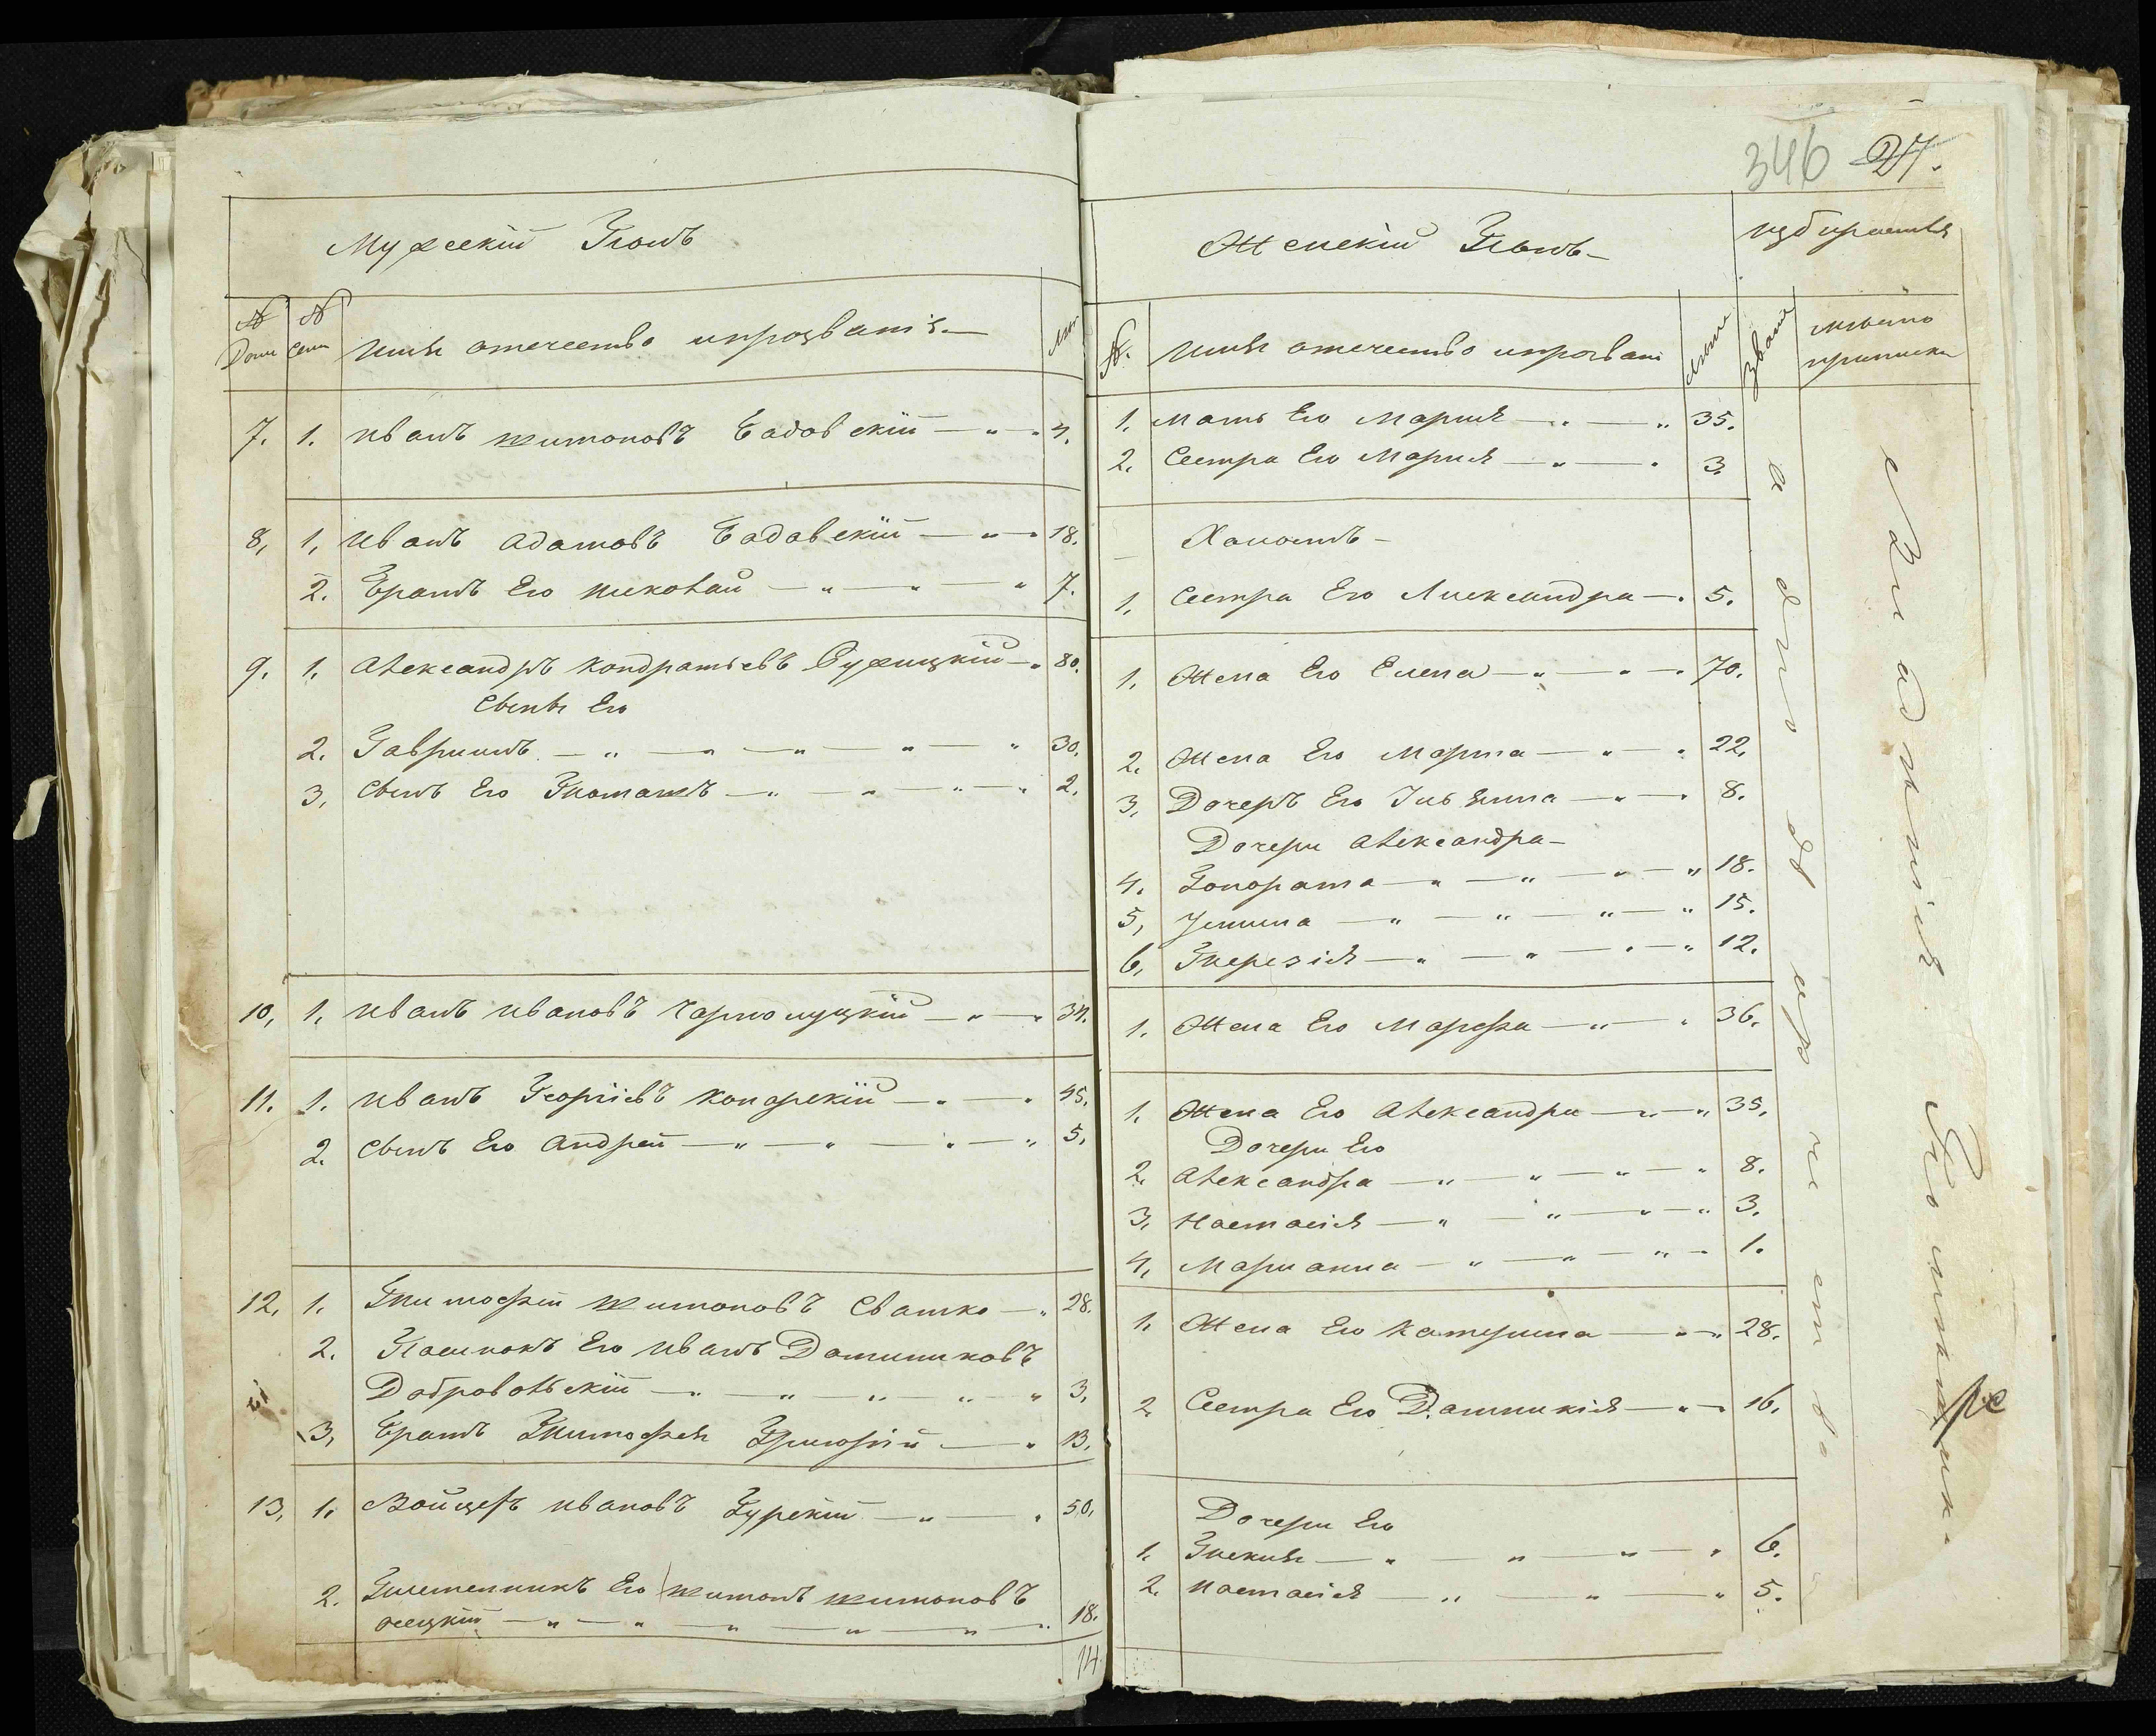 346 27.
Мужескій Полъ
№ Дома
№ Семи
Имя отечество ипрозваніе
Лѣт
7. 1. Иванъ Шимоновъ Садовскій 4.
8. 1. Иванъ Адамовъ Садовскій 18.
2. Братъ Его Николай 7.
9. 1. Александръ Кондратьевъ Ружицкій 80.
Сыны Его
2. Гаврыилъ 30.
3. Сынъ Его Томашъ 2.
10. 1. Иванъ Ивановъ Чарнолуцкій 34.
11. 1. Иванъ Георгіевъ Конарскій 45.
2. Сынъ Его Андрей 5.
12. 1. Тимофей Шимоновъ Сватко 28.
2. Пасынокъ Его Иванъ Доминиковъ
Добровольскій 3.
3. Братъ Тимофея Григорій 13.
13. 1. Войцехъ Ивановъ Гурскій 50.
2. Племенникъ Его Шимонъ Шимоновъ
18.
14.
Женскій Полъ
избираетъся
№.
Имя отечество ипрозвані
Лѣта
Званіе
мѣсто
приписки
1. Мать Его Марія 35.
2. Сестра Его Марія 3.
Холостъ
1. Сестра Его Александра 5.
1. Жена Его Елена 70.
2. Жена Его Марта 22.
3. Дочеръ Его 8.
Дочери Александра
4. Гонората 18.
5. Устина 15.
6. Терезія 12.
1. Жена Его Марфа 36.
1. Жена Его Александра 35.
Дочери Его
2. Александра 8.
3. Настасія 3.
4. Марианна 1.
1. Жена Его Катерина 28.
2. Сестра Его Доминикія 16.
Дочери Его
1. Текля 6.
2. Настасія 5.